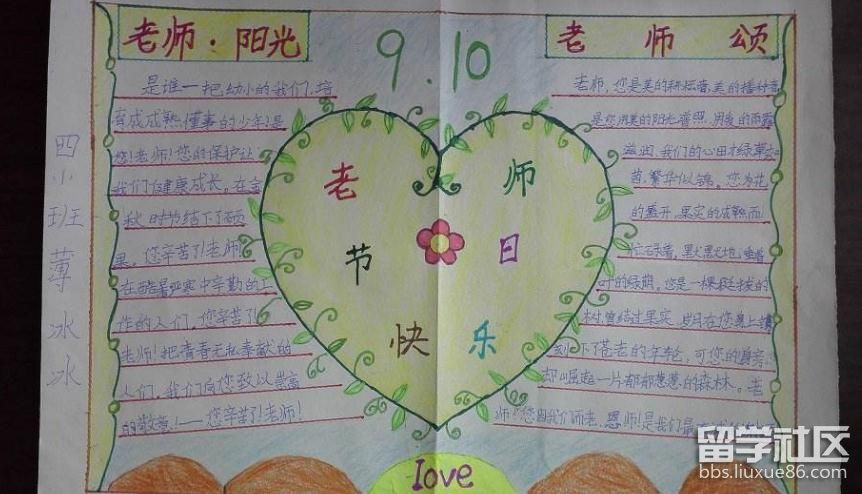 老师·阳光
9.10
老师颂
是谁一把幼小的我们,培
育成成熟,懂事的少年?是
您!老师!您的保护让
我们健康成长。在金
秋时节结下了硕
果。您辛苦了!老师!
在酷暑严寒中辛勤的工
作的人们。您辛苦了!
老师!把青春无私奉献的
人们,我们向您致以崇高
的敬意!——您辛苦了!老师!
老师
节日
快乐
老师,您是美的耕耘者,美的播种者
是您用美的阳光普照,用美的雨露
滋润,我们的心田才绿草
茵,繁华似锦。您为花
的盛开,果实的成熟而
忙碌着,默默地,垂着
叶的绿荫,您是一棵挺拔的
树,曾结过果实,岁月在您身上镌
刻下了苍老的年轮,可您的身旁
却崛起一片郁郁葱葱的森林。老
师!您因我们而老,恩师!是我们最
love
四小班薄冰冰
留学社区
bbs.liuxue86.com